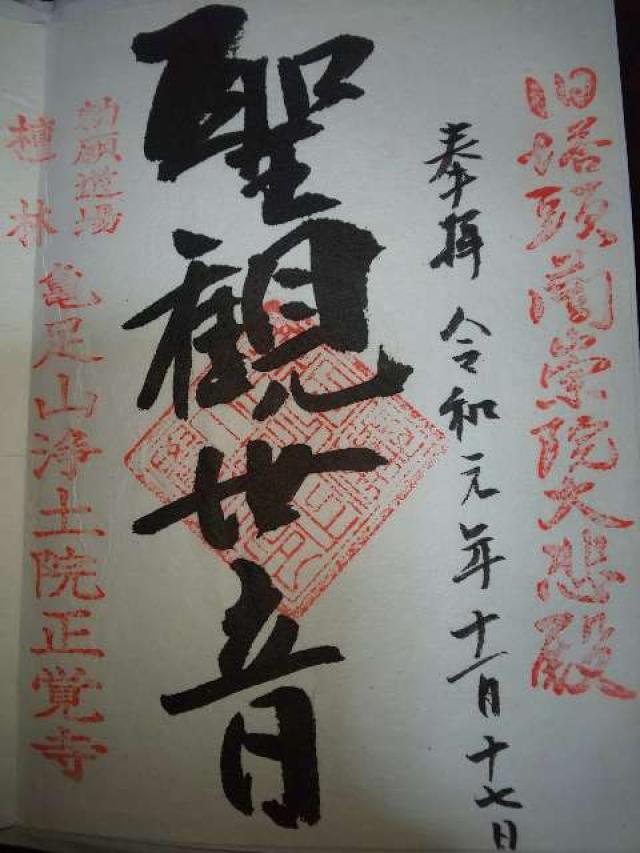 旧塔頭南崇院大悲殿
奉拝 令和元年十一月十七日
聖観世音
勅願道場
檀林
亀足山浄土院正覚寺